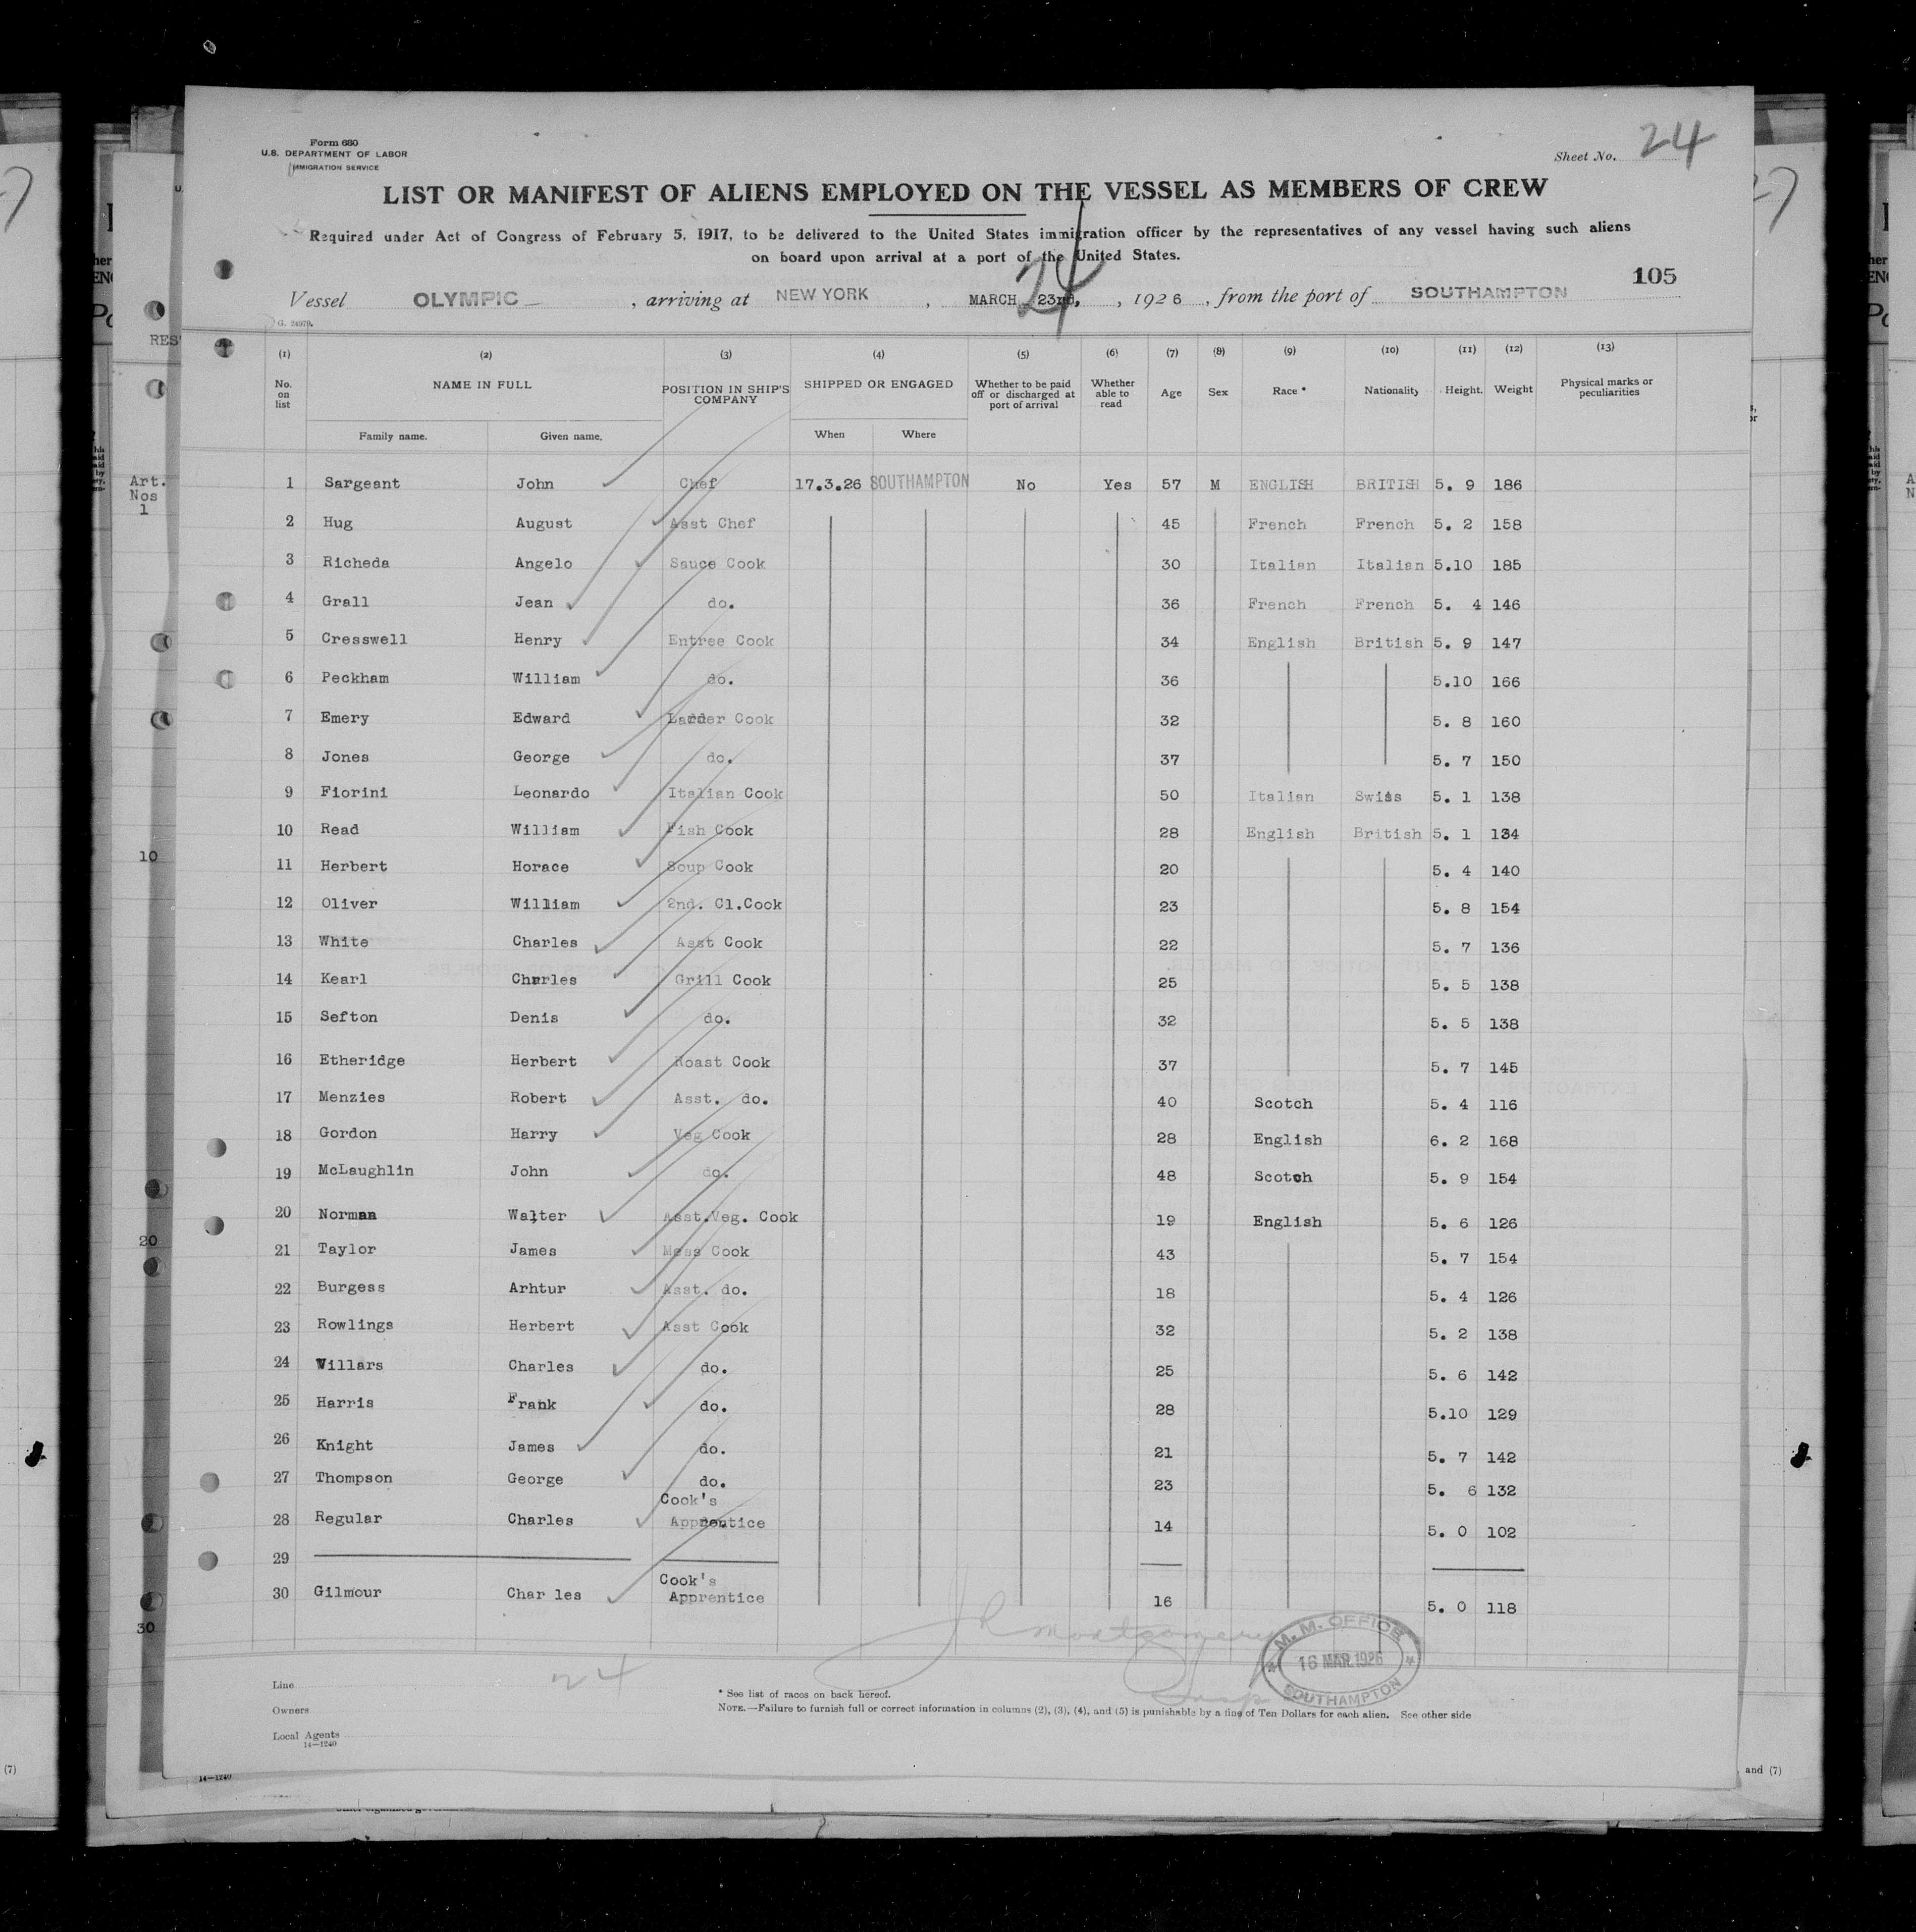 Form 680
U.S. DEPARTMENT OF LABOR
IMMIGRATION SERVICE
Sheet No. 24
LIST OR MANIFEST OF ALIENS EMPLOYED ON THE VESSEL AS MEMBERS OF CREW
Required under Act of Congress of February 5, 1917, to be delivered to the United States immigration officer by the representatives of any vessel having such aliens
on board upon arrival at a port of the United States.
105
Vessel OLYMPIC, arriving at NEW YORK, MARCH 23rd, 24, 1926, from the port of SOUTHAMPTON
G. 24979.
(1) (2) (3) (4) (5) (6) (7) (8) (9) (10) (11) (12) (13)
No. on list NAME IN FULL POSITION IN SHIP'S COMPANY SHIPPED OR ENGAGED Whether to be paid off or discharged at port of arrival Whether able to read Age Sex Race * Nationality Height. Weight Physical marks or peculiarities
Family name. Given name. When Where
1 Sargeant John Chef 17.3.26 SOUTHAMPTON No Yes 57 M ENGLISH BRITISH 5. 9 186
2 Hug August Asst Chef 45 French French 5. 2 158
3 Richeda Angelo Sauce Cook 30 Italian Italian 5.10 185
4 Grall Jean do. 36 French French 5. 4 146
5 Cresswell Henry Entree Cook 34 English British 5. 9 147
6 Peckham William do. 36 5.10 166
7 Emery Edward Larder Cook 32 5. 8 160
8 Jones George do. 37 5. 7 150
9 Fiorini Leonardo Italian Cook 50 Italian Swiss 5. 1 138
10 Read William Fish Cook 28 English British 5. 1 134
11 Herbert Horace Soup Cook 20 5. 4 140
12 Oliver William 2nd. Cl.Cook 23 5. 8 154
13 White Charles Asst Cook 22 5. 7 136
14 Kearl Charles Grill Cook 25 5. 5 138
15 Sefton Denis do. 32 5. 5 138
16 Etheridge Herbert Roast Cook 37 5. 7 145
17 Menzies Robert Asst. do. 40 Scotch 5. 4 116
18 Gordon Harry Veg Cook 28 English 6. 2 168
19 McLaughlin John do. 48 Scotch 5. 9 154
20 Norman Walter Asst.Veg. Cook 19 English 5. 6 126
21 Taylor James Mess Cook 43 5. 7 154
22 Burgess Arhtur Asst. do. 18 5. 4 126
23 Rowlings Herbert Asst Cook 32 5. 2 138
24 Willars Charles do. 25 5. 6 142
25 Harris Frank do. 28 5.10 129
26 Knight James do. 21 5. 7 142
27 Thompson George do. 23 5. 6 132
28 Regular Charles Cook's Apprentice 14 5. 0 102
29
30 Gilmour Char les Cook's Apprentice 16 5. 0 118
JR Montgomery
Insp
M. M. OFFICE
16 MAR.1926
SOUTHAMPTON
24
Line
Owners
Local Agents
14—1240
* See list of races on back hereof.
NOTE.—Failure to furnish full or correct information in columns (2), (3), (4), and (5) is punishable by a fine of Ten Dollars for each alien. See other side
14—1240
Art.
Nos
1
10
20
30
(7)
and (7)